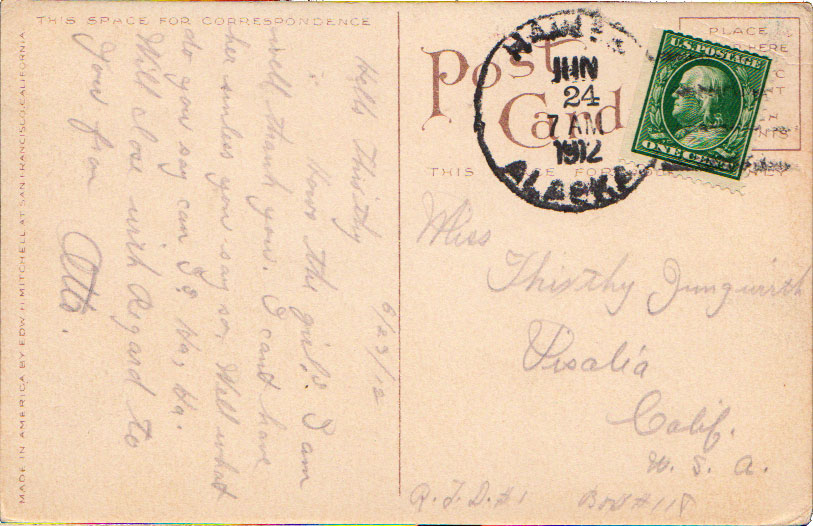 THIS SPACE FOR CORRESPONDENCE
6/23/12
Hello Thisthy
Hows the girl? I am
well thank you. I cant have
her unless you say so, Well what
do you say can I? Ha, Ha.
Will close with Regard to
You from
Otto.
MADE IN AMERICA BY EDW. H. MITCHELL AT SAN FRANCISCO, CALIFORNIA
Post
Card
THIS FOR
PLACE
HERE
JUN
24
7 AM
1912
ALASKA
U.S. POSTAGE
ONE CENT
Miss
Thisthy Jungwirth
Visalia
Calif.
U. S. A.
R. F. D. #1 Box #118